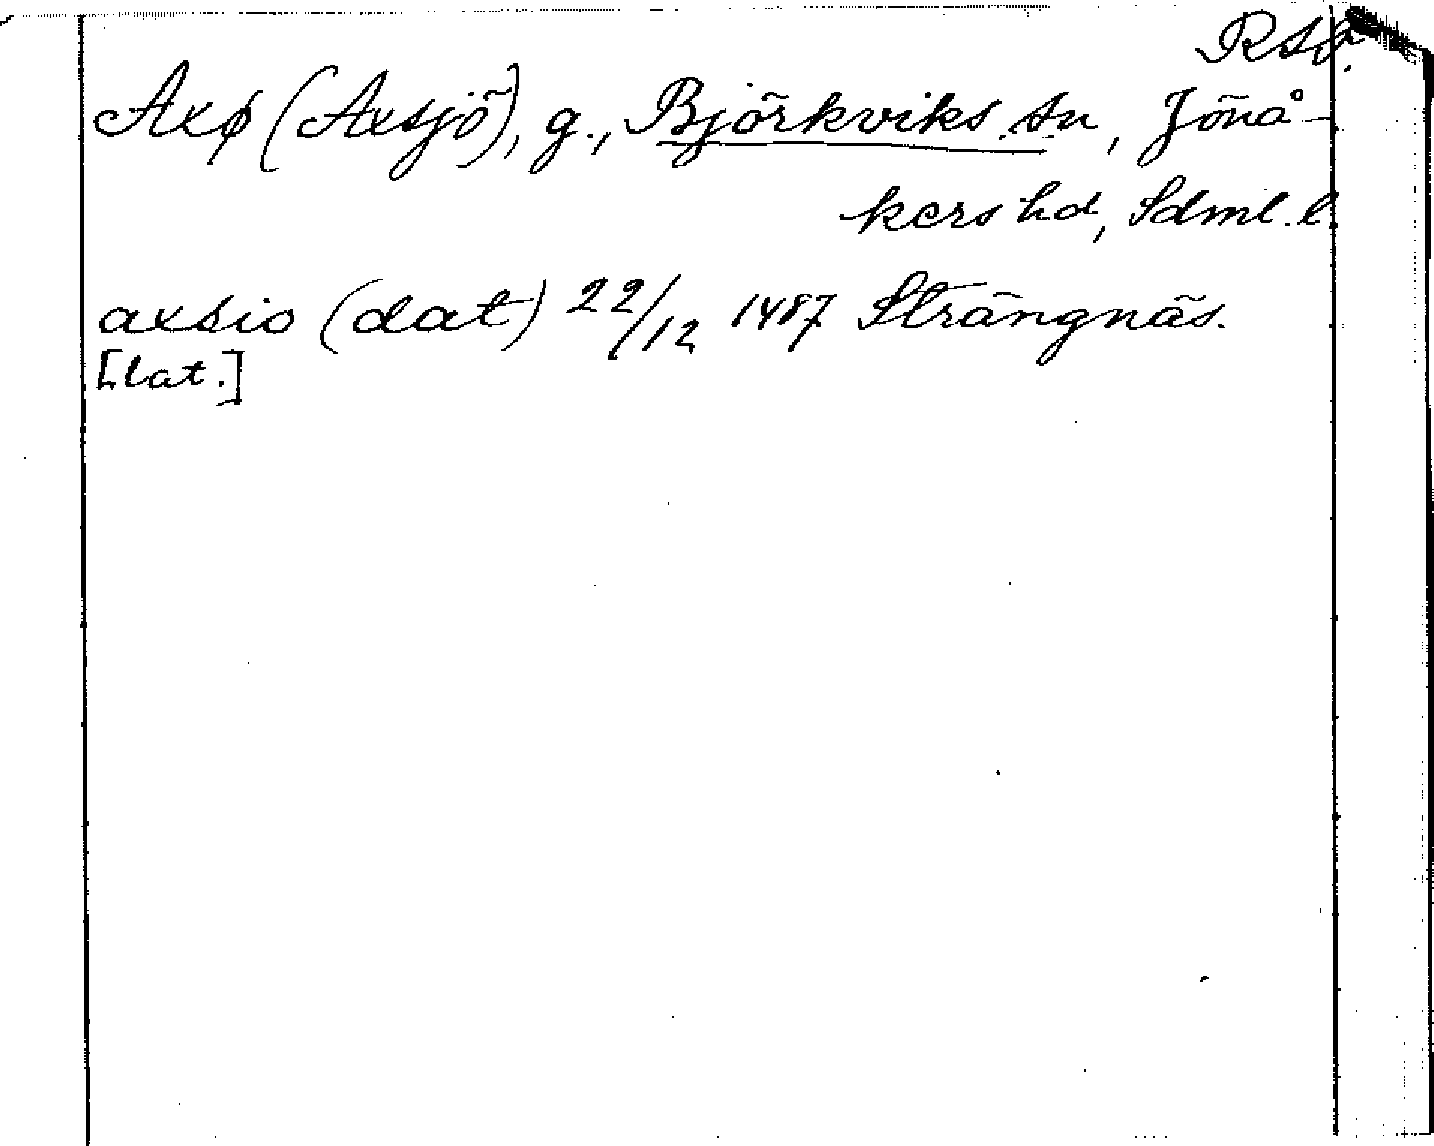 RAp.
Axø (Axsjö), g., Björkviks sn, Jönå-
kers hd, Sdml. l.
axsio (dat) 22/12 1487 Strängnäs.
[lat.]